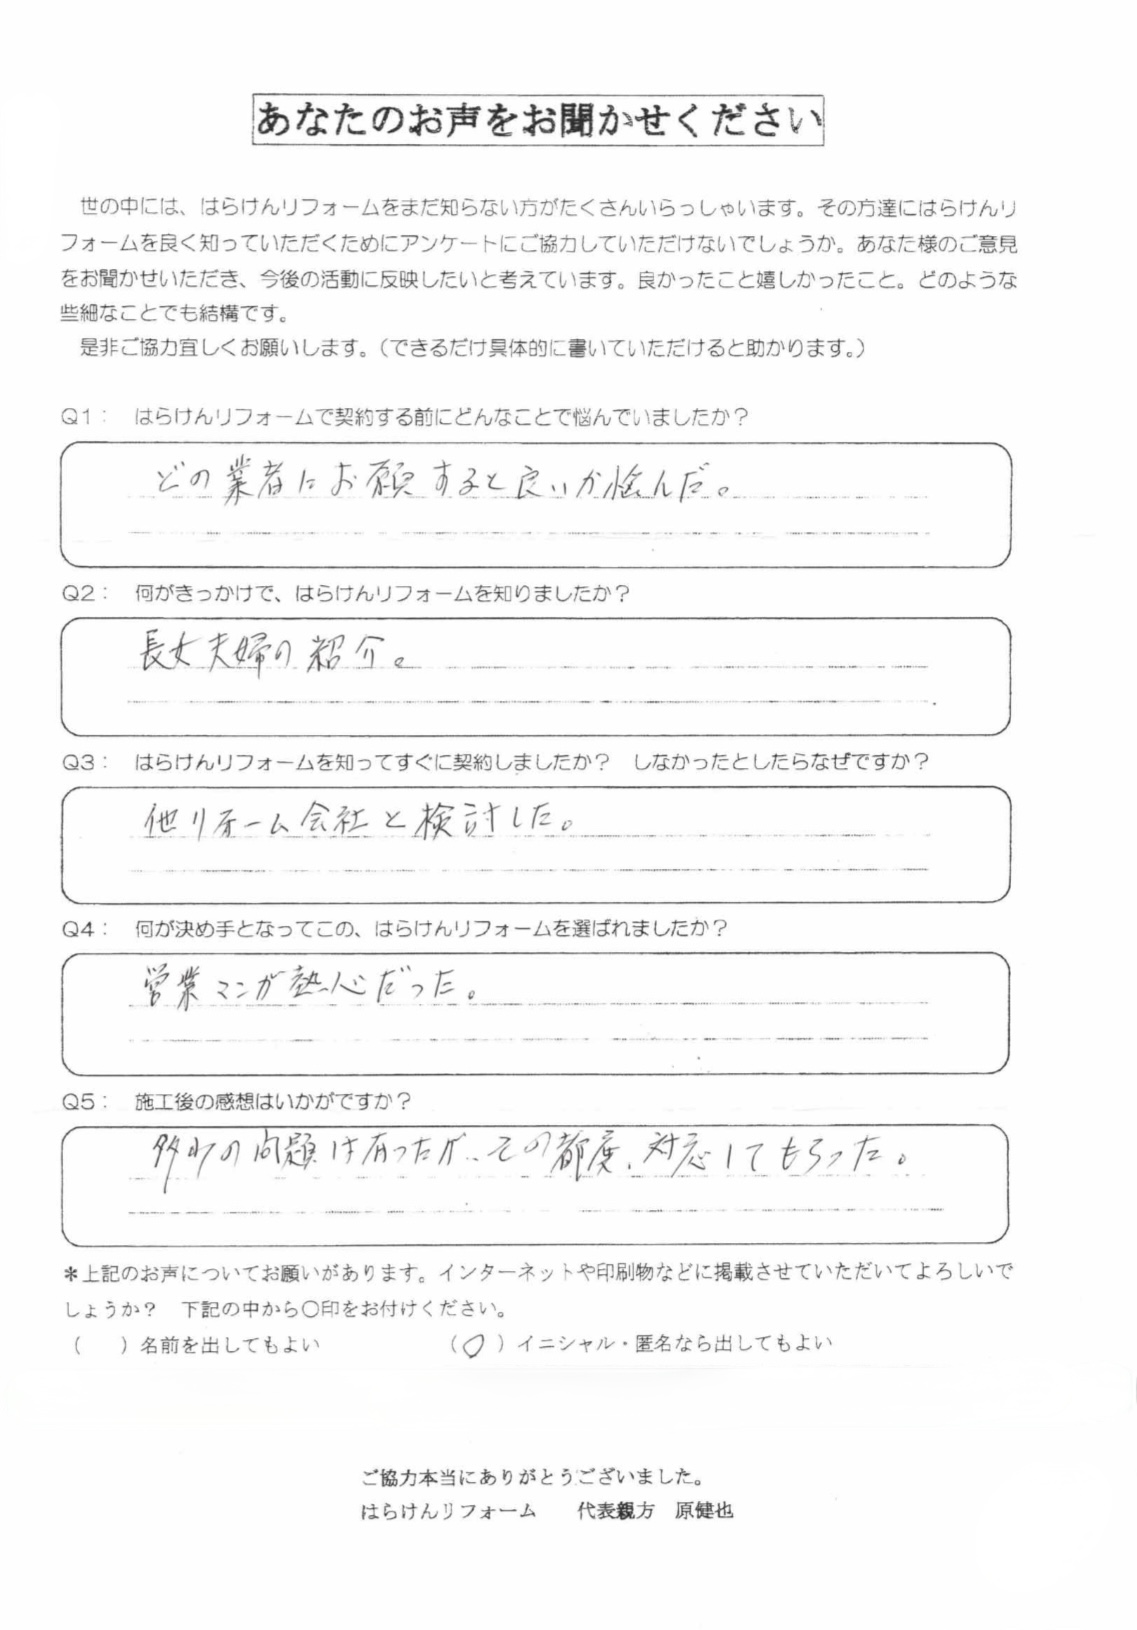 あなたのお声をお聞かせください
世の中には、はらけんリフォームをまだ知らない方がたくさんいらっしゃいます。その方達にはらけんリ
フォームを良く知っていただくためにアンケートにご協力していただけないでしょうか。あなた様のご意見
をお聞かせいただき、今後の活動に反映したいと考えています。良かったこと嬉しかったこと。どのような
些細なことでも結構です。
是非ご協力宜しくお願いします。（できるだけ具体的に書いていただけると助かります。）
Q1： はらけんリフォームで契約する前にどんなことで悩んでいましたか？
どの業者にお願すると良いか悩んだ。
Q2： 何がきっかけで、はらけんリフォームを知りましたか？
長女夫婦の紹介。
Q3： はらけんリフォームを知ってすぐに契約しましたか？ しなかったとしたらなぜですか？
他リフォーム会社と検討した。
Q4： 何が決め手となってこの、はらけんリフォームを選ばれましたか？
営業マンが熱心だった。
Q5： 施工後の感想はいかがですか？
多少の問題は有ったが、その都度、対応してもらった。
＊上記のお声についてお願いがあります。インターネットや印刷物などに掲載させていただいてよろしいで
しょうか？ 下記の中から〇印をお付けください。
（ ）名前を出してもよい （〇）イニシャル・匿名なら出してもよい
ご協力本当にありがとうございました。
はらけんリフォーム 代表親方 原健也